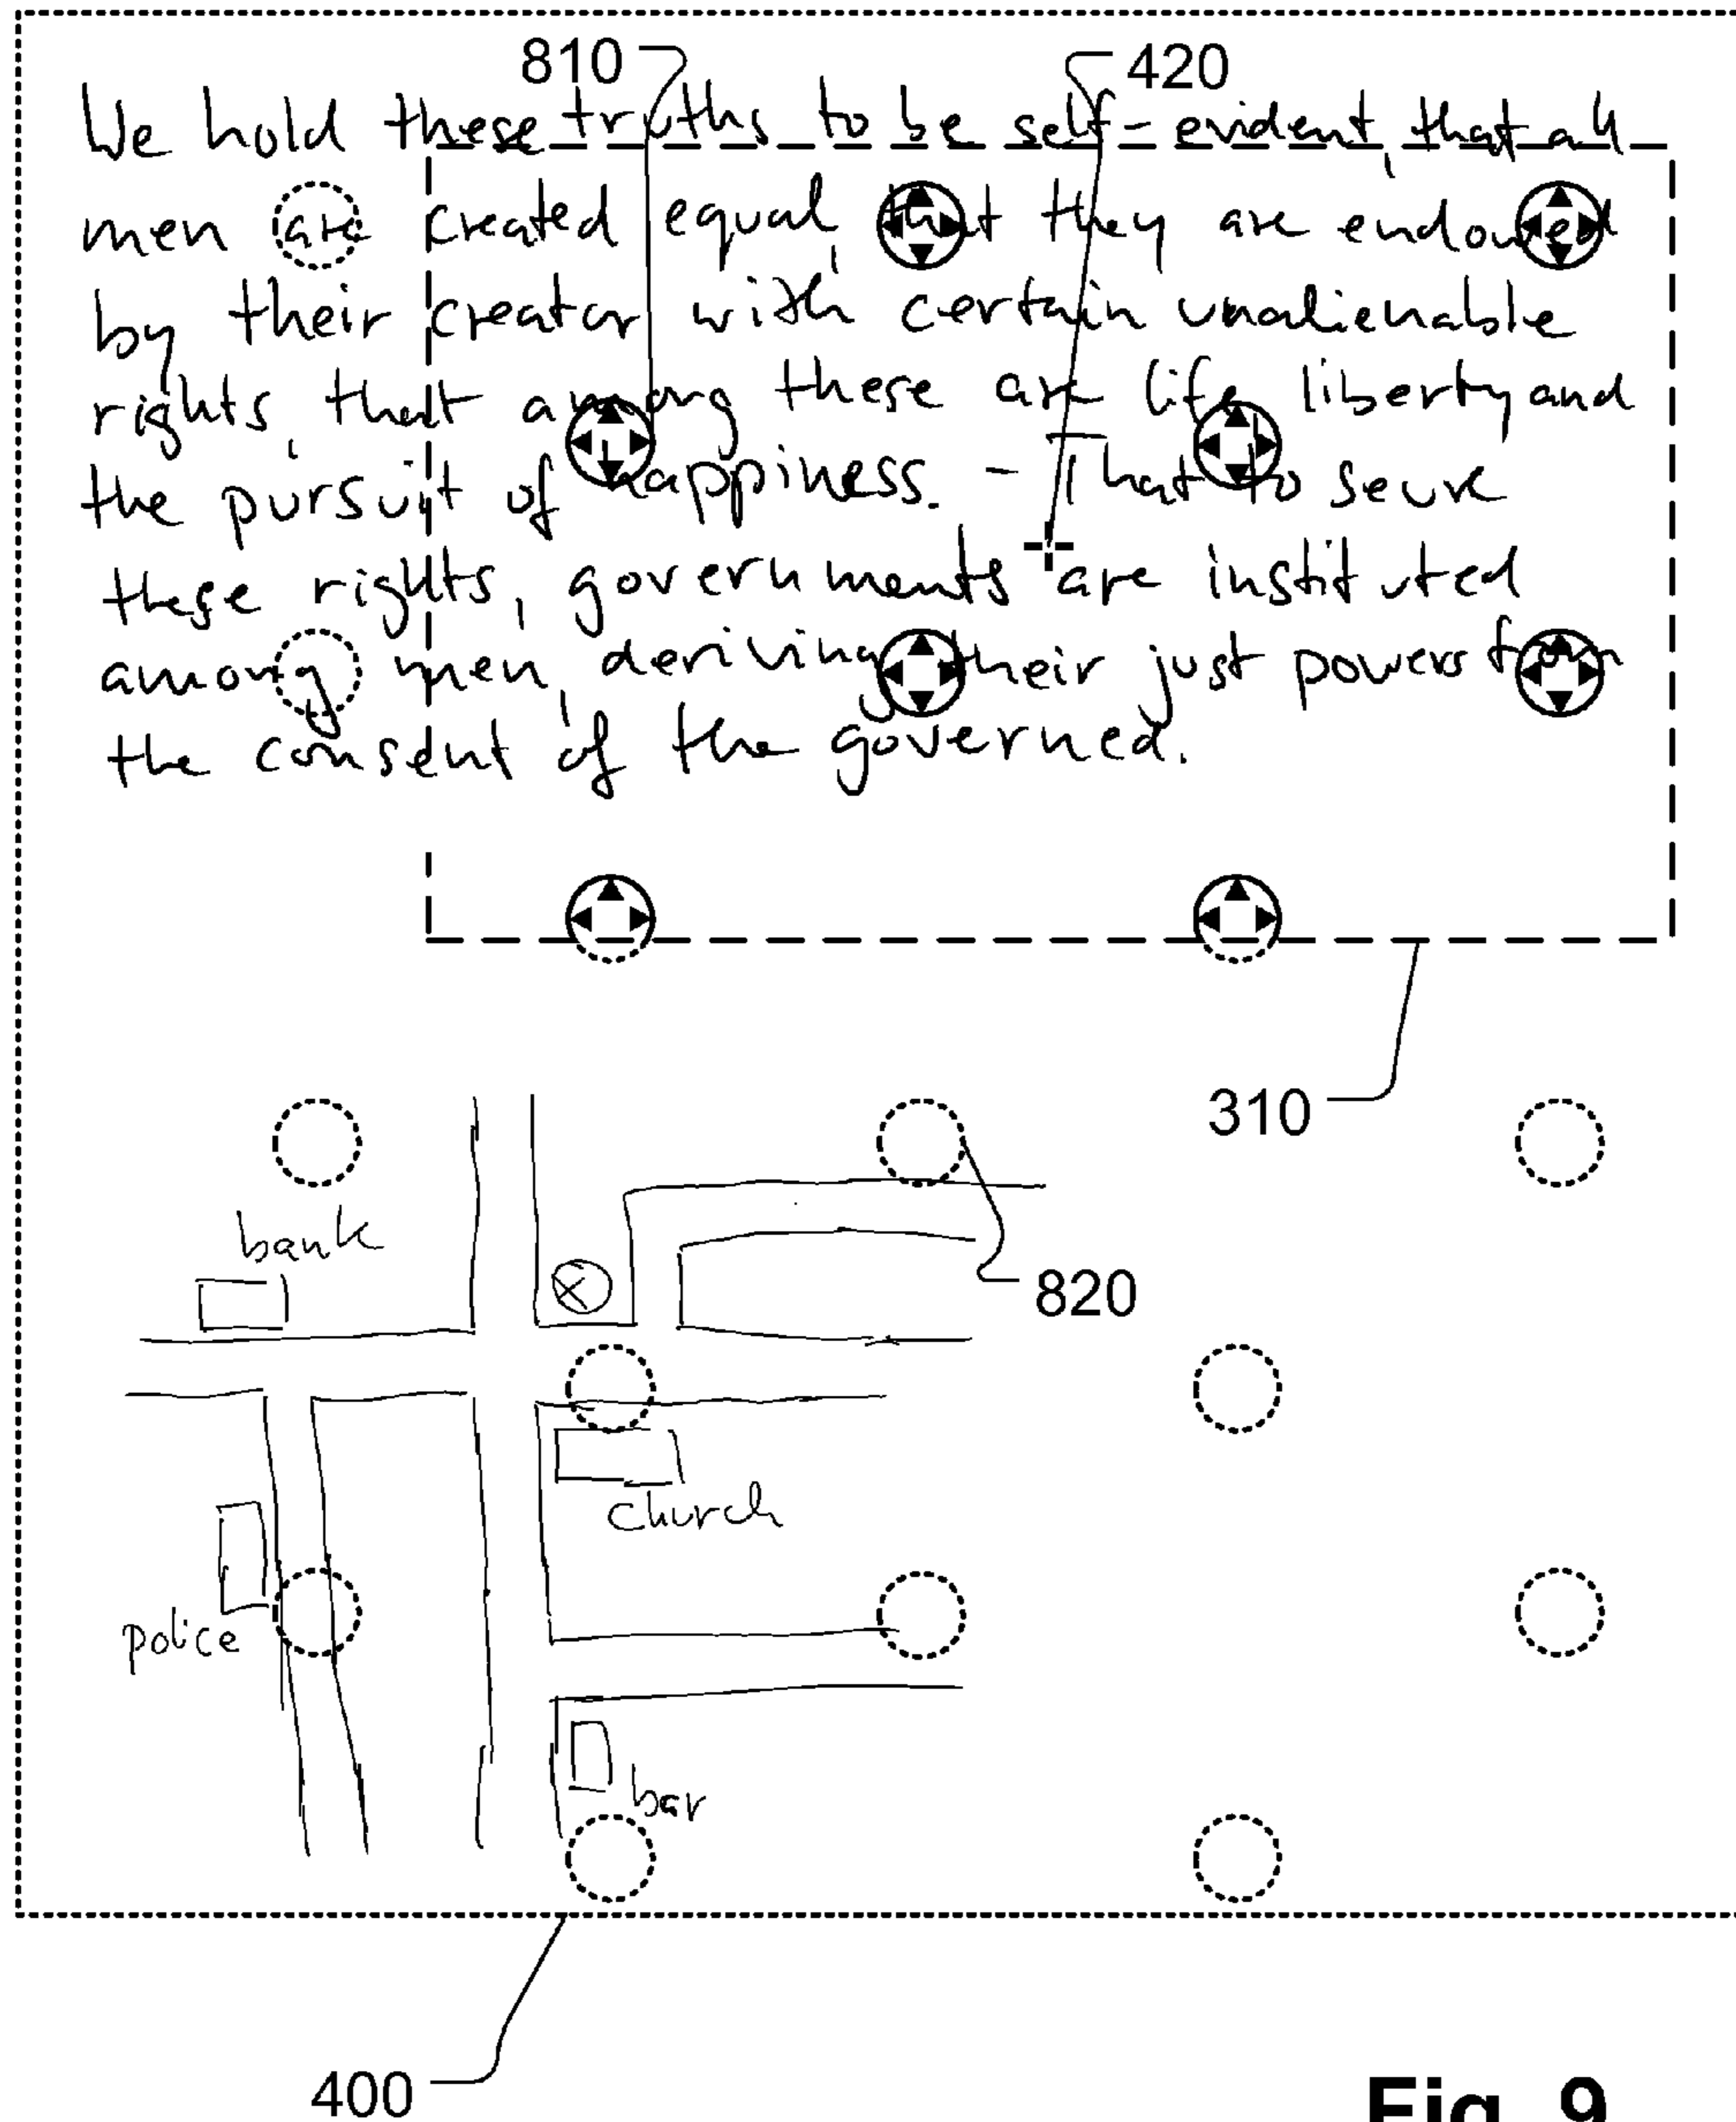 810
420
We hold these truths to be self-evident, that all
men are created equal, that they are endowed
by their creator with certain unalienable
rights, that among these are life, liberty and
the pursuit of happiness. - That to secure
these rights, governments are instituted
among men, deriving their just powers from
the consent of the governed.
310
bank
820
church
police
bar
400
Fig. 9